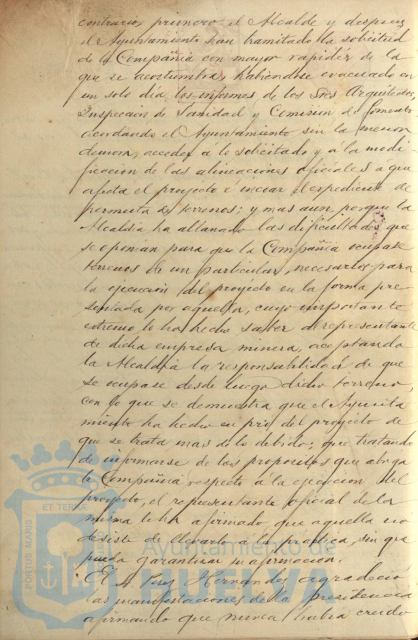 contrario, primero el Alcalde y despues
el Ayuntamiento han tramitado la solicitud
de la Compañia con mayor rapidez de la
que se acostumbra, habiendose evacuado en
un solo dia los informes de los Sres Arquitectos,
Inspeccion de Sanidad y Comision de Fomento
acordando el Ayuntamiento sin la menor
demora, acceder á lo solicitado y a la modi-
ficacion de las alineaciones oficiales a que
afecta el proyecto é incoar el espediente de
permuta de terrenos; y mas aun, porque la
Alcaldia ha allanado las dificultades que
se oponian para que la Compañia ocupase
terrenos de un particular, necesarios para
la ejecucion del proyecto en la forma pre-
sentada por aquella, cuyo importante
extremo le ha hecho saber al representante
de dicha empresa minera, aceptando
la Alcaldia la responsabilidad de que
se ocupase desde luego dicho terreno,
con lo que se demuestra que el Ayunta
miento ha hecho en pró del proyecto de
que se trata mas de lo debido; que tratando
de informarse de los propositos que abriga
la Compañia respecto á la ejecucion del
proyecto, el representante oficial de la
misma le ha afirmado, que aquella no
desiste de llevarlo a la practica, sin que
pueda garantizar su afirmacion.
El Sr. Perez Hernandez agradeció
las manifestaciones de la presidencia
afirmando que nunca habia creido
PORTUS MARIS
ET TERRAE
Ayuntamiento de
HUELVA